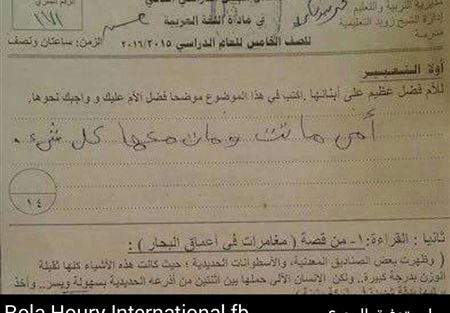 مديرية التربية والتعليم
إدارة الشيخ زويد التعليمية
مدرسة
في مادة اللغة العربية
للصف الخامس للعام الدراسي ٢٠١٦/٢٠١٥
الزمن: ساعتان ونصف
١٧١
أولا التعبير
للأم فضل عظيم على أبنائها. اكتب في هذا الموضوع موضحا فضل الأم عليك و واجبك نحوها.
أمى ماتت ومات معها كل شيء.
١٤
ثانيا : القراءة: ١- من قصة ( مغامرات فى أعماق البحار ) :
( وظهرت بعض الصناديق المعدنية، والأسطوانات الحديدية ؛ حيث كانت هذه الأشياء كلها ثقيلة
الوزن بدرجة كبيرة.. ولكن الانسان الآلى حملها بين اثنتين من أذرعه الحديدية بسهولة ويسر.. وأخذ
Rola Houry International fb